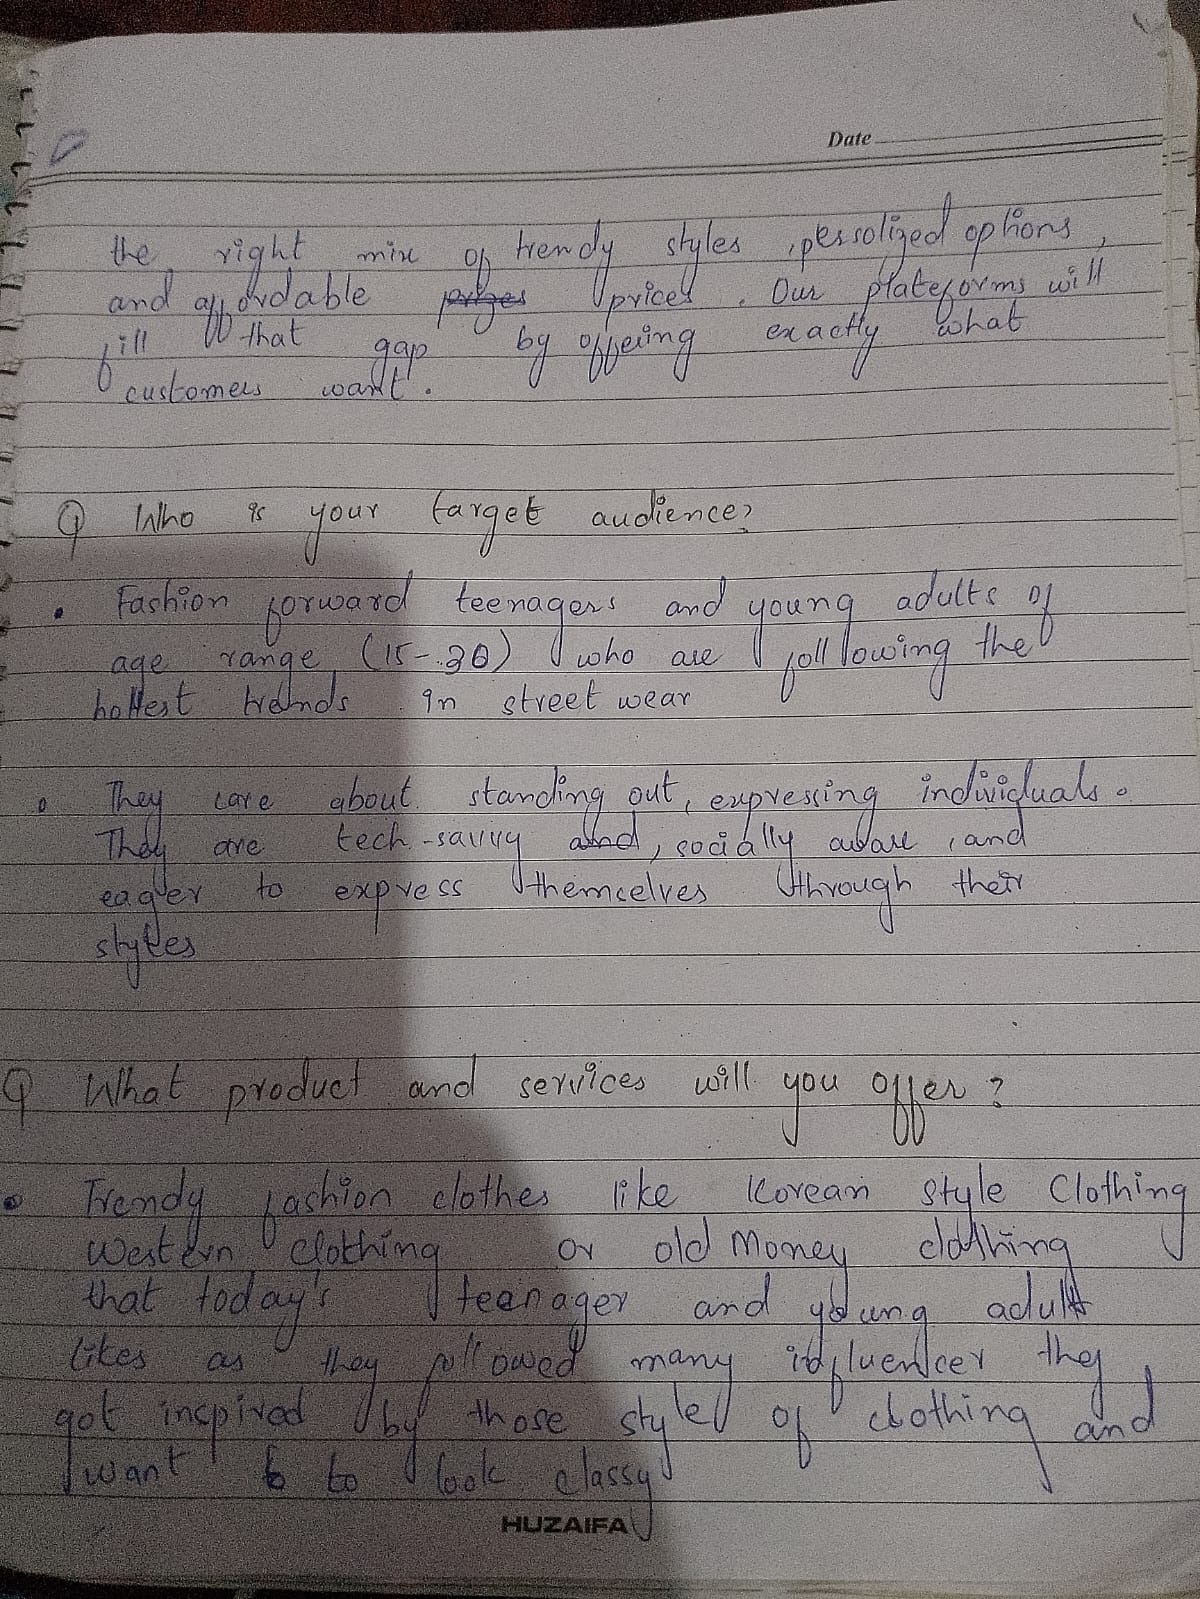 Date
the right mix of trendy styles, pessolized options,
and affordable prizes prices. Our plateforms will
fill that gap by offeing exactly what
customers want.
Q Who is your target audience?
• Fashion forward teenagers and young adults of
age range (15-30) who are following the
hottest trends in street wear
• They care about standing out, expressing individuals.
They are tech-savvy and, socially aware, and
eager to express themselves through their
styles
Q What product and services will you offer?
• Trendy fashion clothes like Korean style Clothing
Western clothing or old Money clothing
that today's teenager and young adult
likes as they followed many influencer they
got inspired by those style of clothing and
want to look classy
HUZAIFA